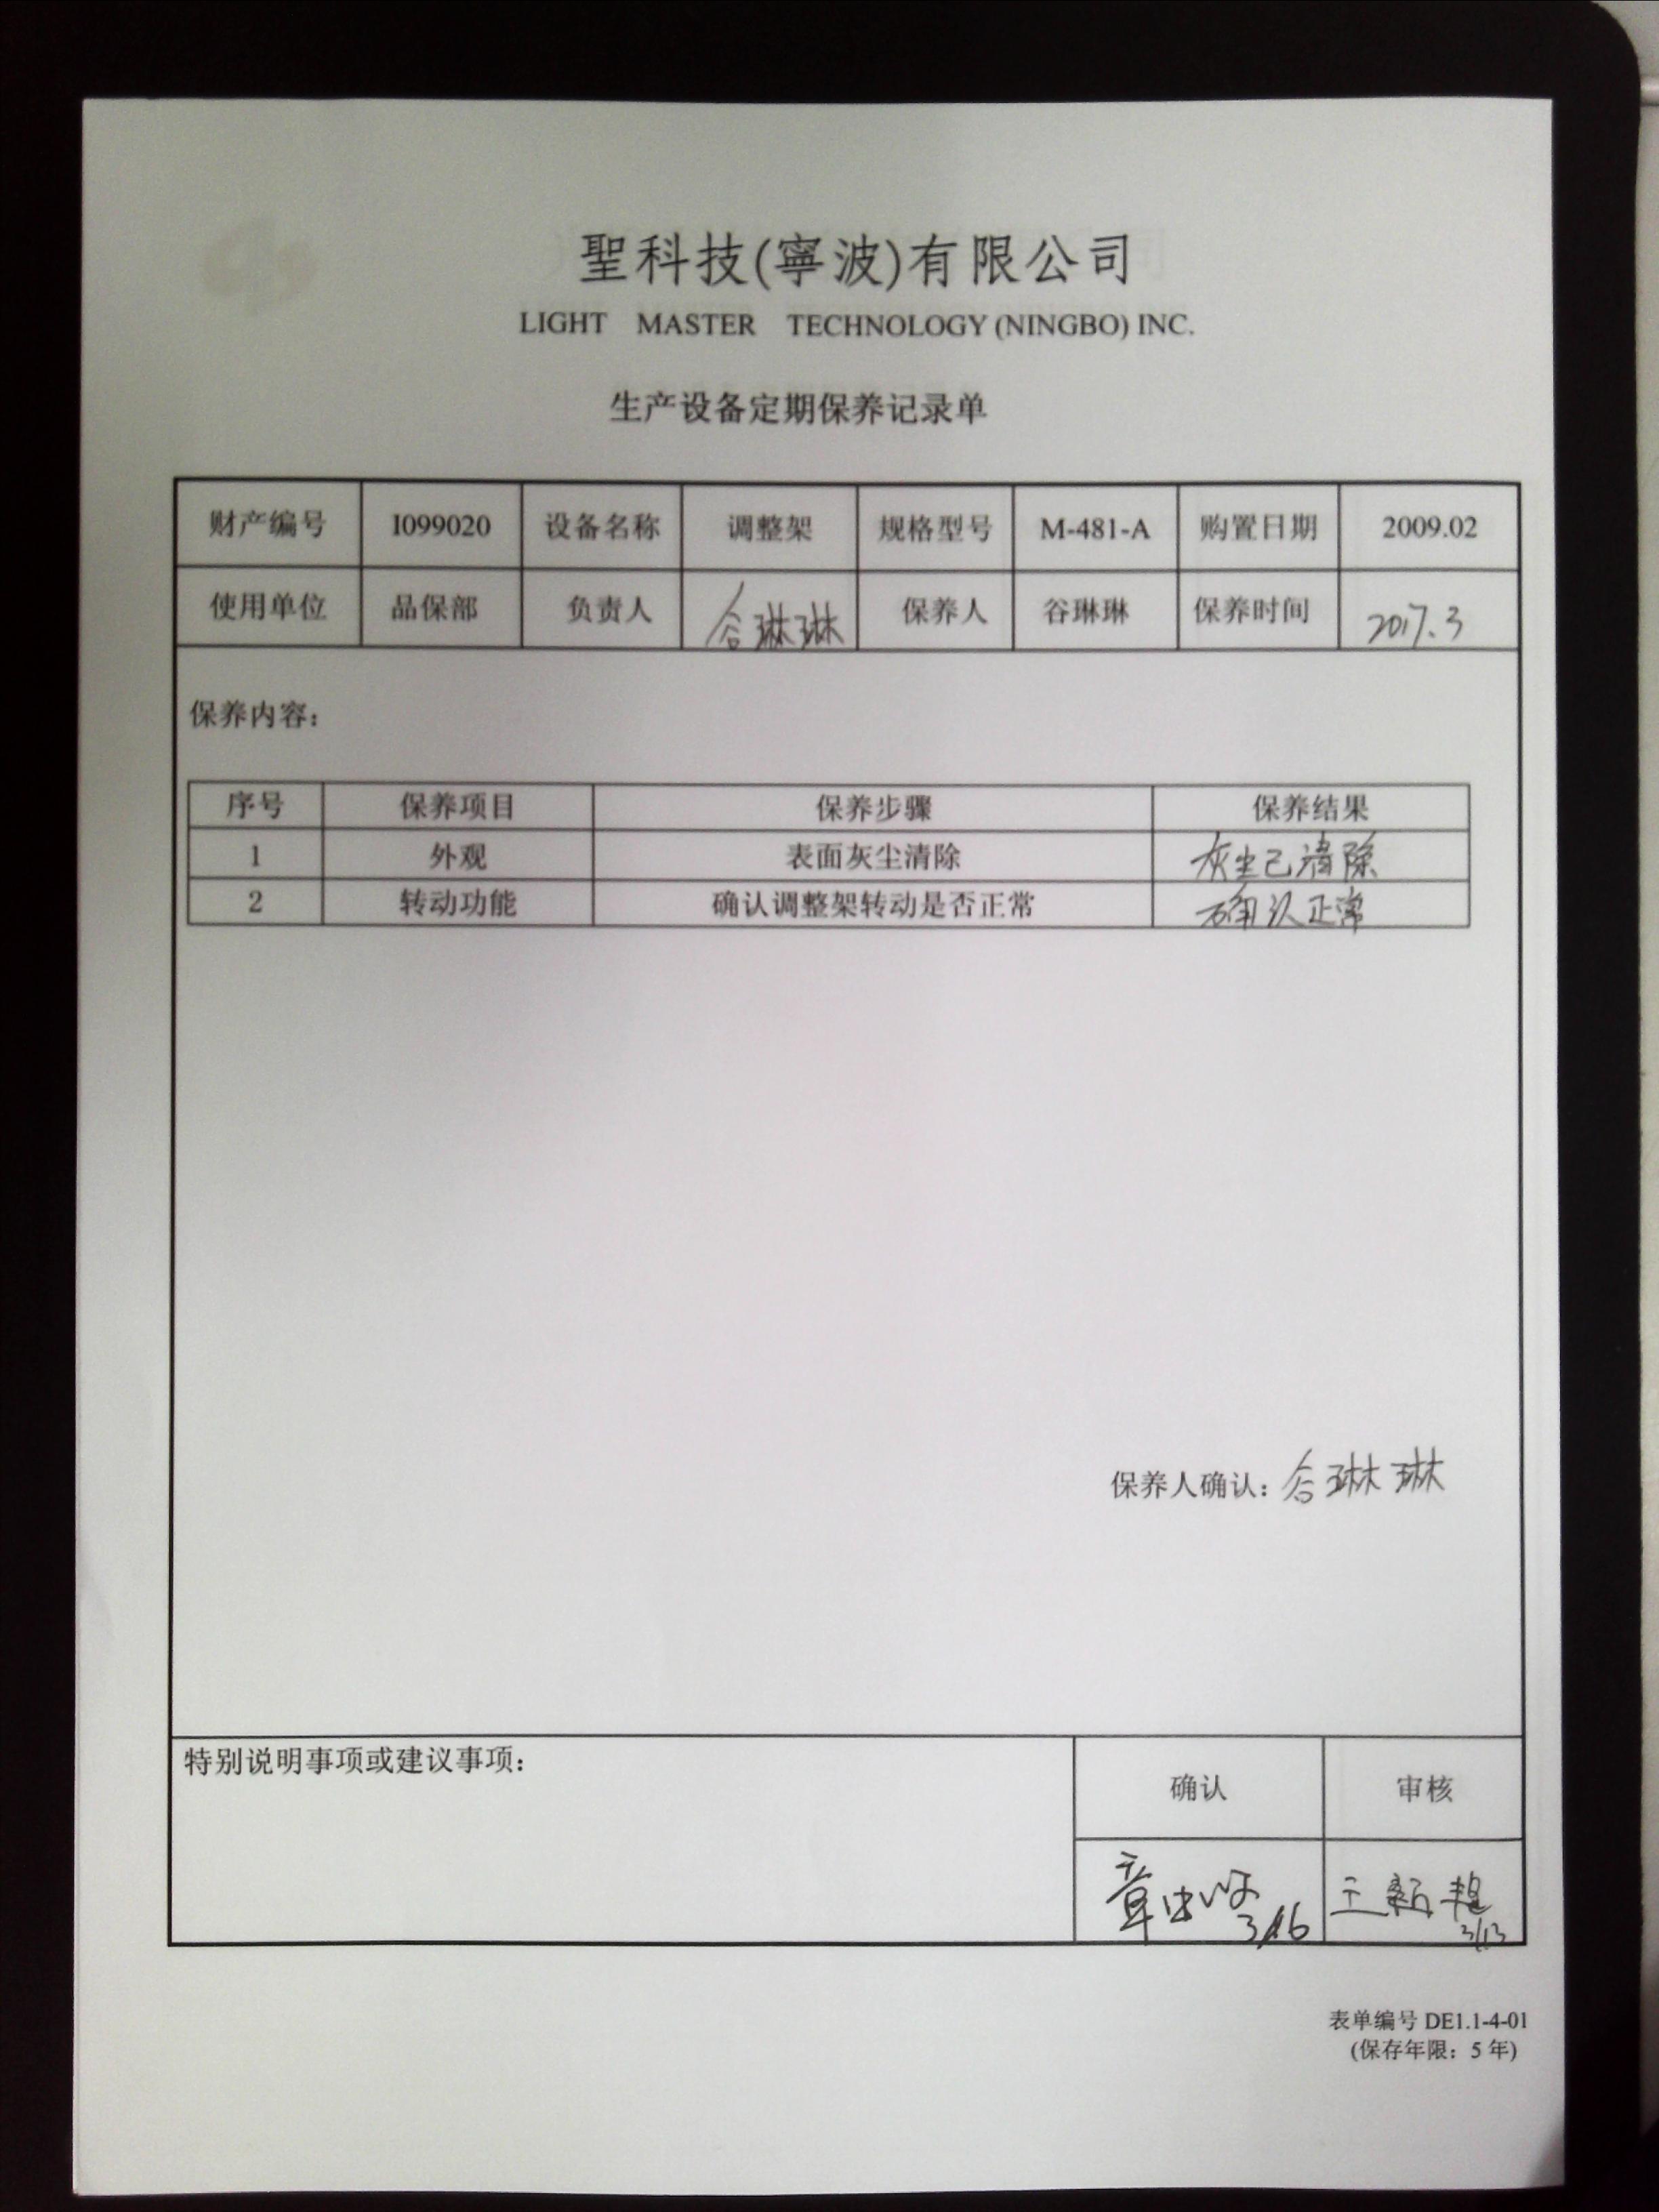 聖科技(寧波)有限公司
LIGHT MASTER TECHNOLOGY (NINGBO) INC.
生产设备定期保养记录单
财产编号 I099020 设备名称 调整架 规格型号 M-481-A 购置日期 2009.02
使用单位 品保部 负责人 谷琳琳 保养人 谷琳琳 保养时间 2017.3
保养内容：
序号 保养项目 保养步骤 保养结果
1 外观 表面灰尘清除 灰尘已清除
2 转动功能 确认调整架转动是否正常 确认正常
保养人确认：谷琳琳
特别说明事项或建议事项：
确认 审核
3/16 3/13
表单编号 DE1.1-4-01
(保存年限：5 年)